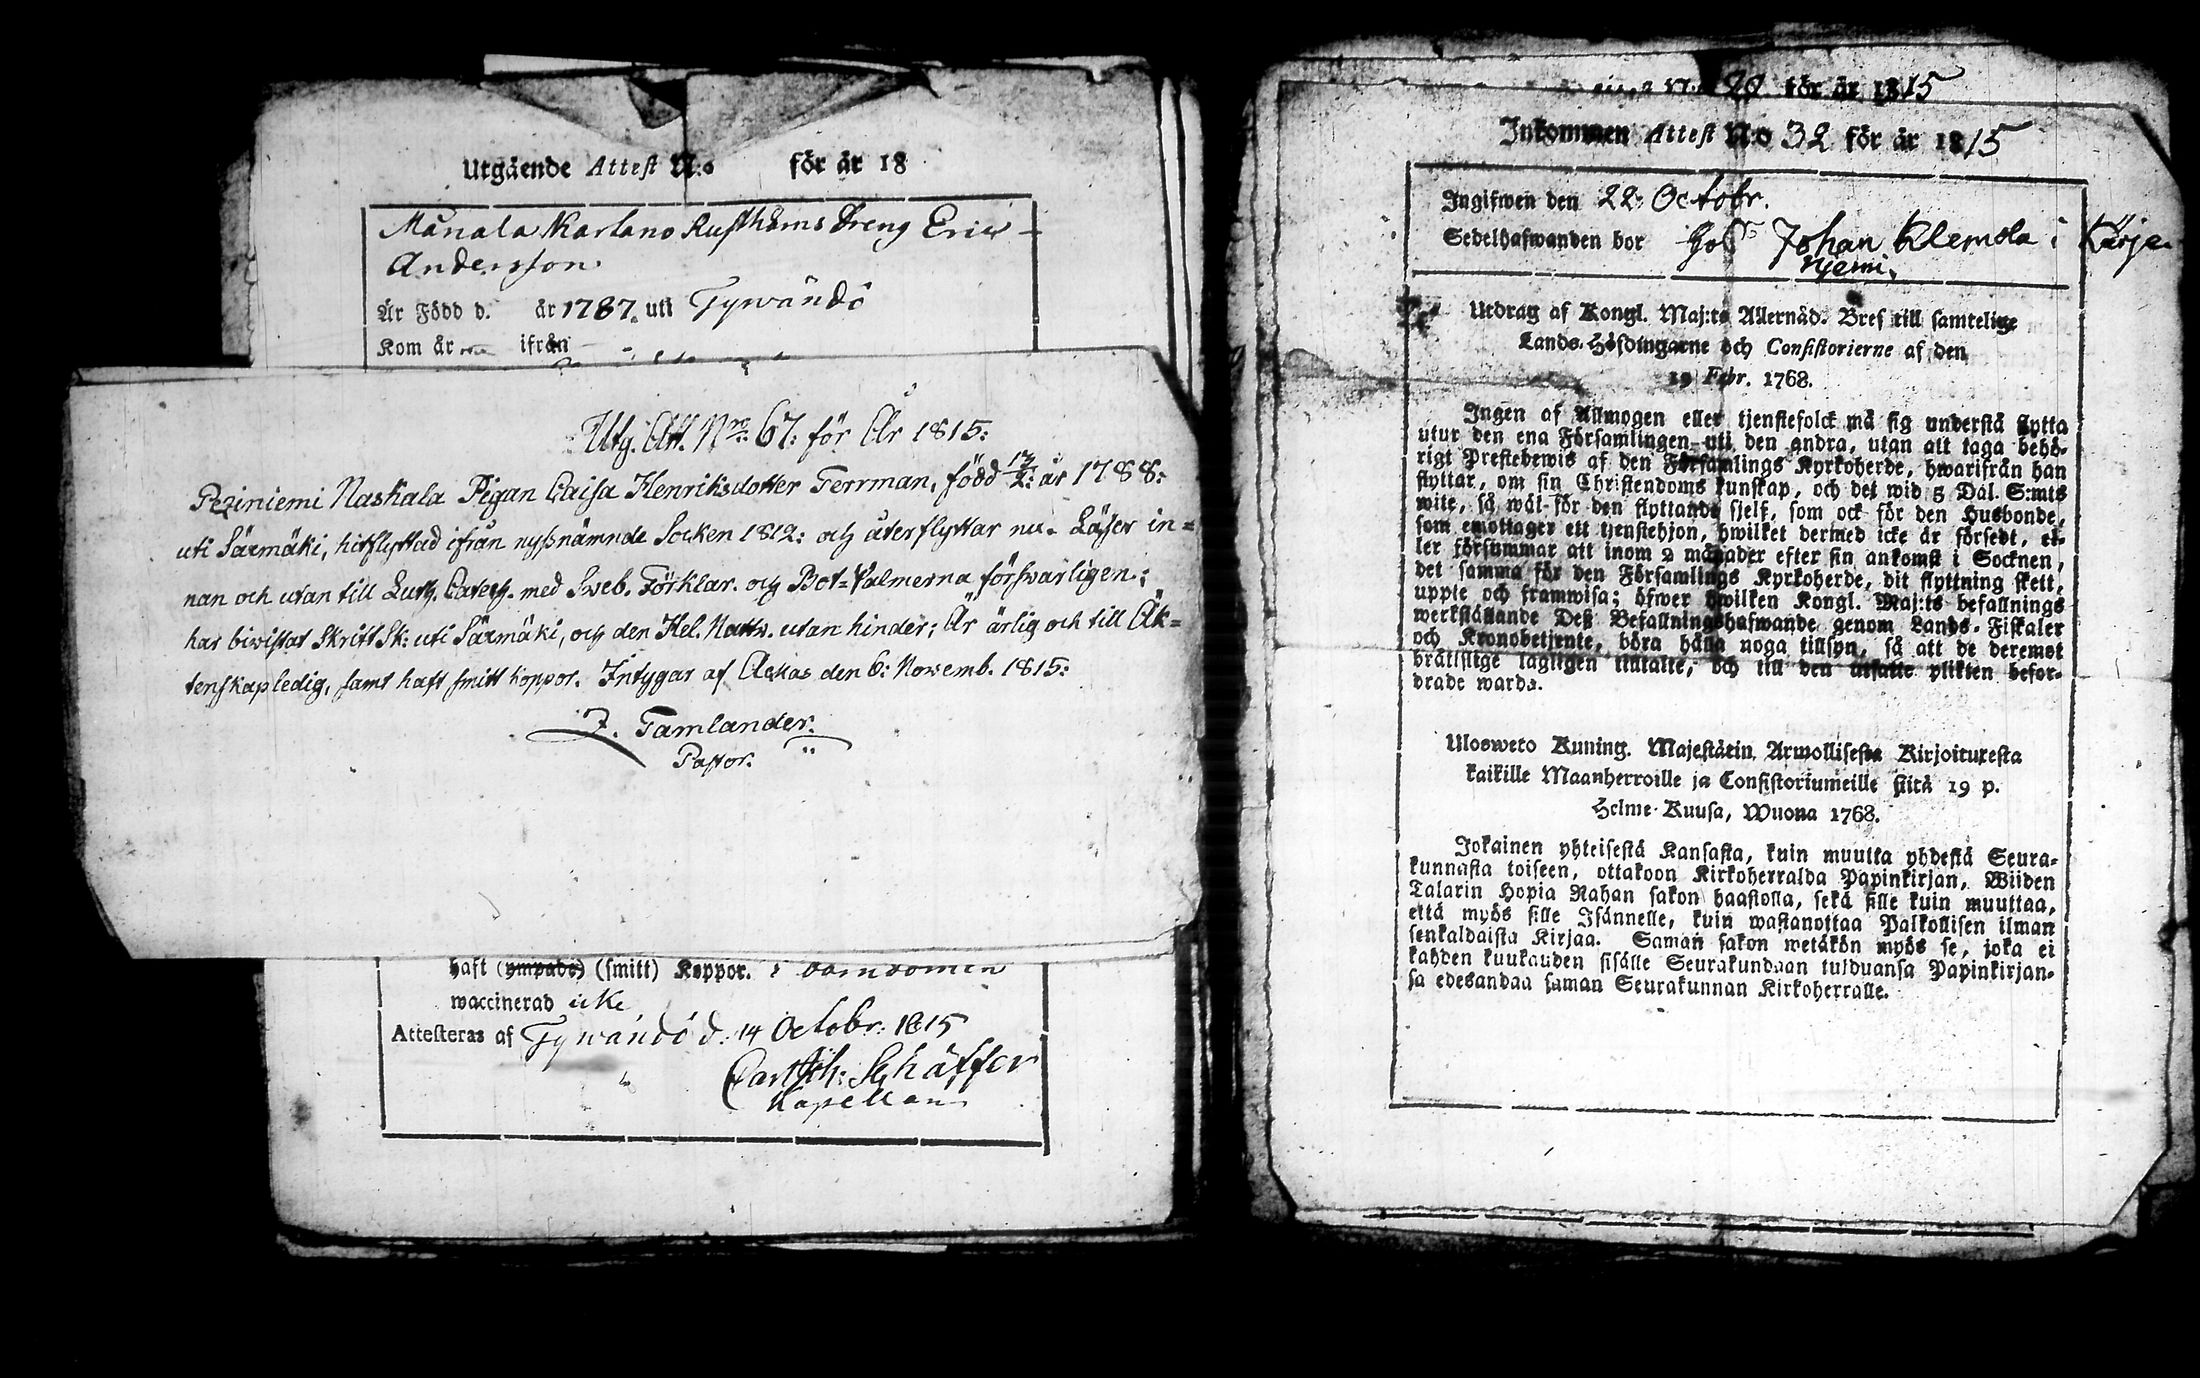 Utgående Attest N:o för år 18
Månala Kartano Rusthåms Dreng Eric
Andersson
Är Född d. år 1787. uti Tyrvändö
Kom år ifrån
Utg. Att. Nro: 67: för År 1815:
Peziniemi Naskala Pigan Caisa Henriksdotter Terrman, född 13/2: år 1788:
uti Säxmäki, hitflyttad ifrån nyssnämnde Socken 1812: och återflyttar nu. Läser in=
nan och utan till Luth. Catech. med Sweb. Förklar. och Bot=Psalmerna försvarligen;
har biwistat Skrift Sk: uti Säxmäki, och den Hel. Nattv. utan hinder; Är ärlig och till Äk=
tenskap ledig, samt haft smitt koppor. Intygar af Ackas den 6: Novemb. 1815:
J. Tamlander.
Pastor.
haft (ympade) (smitt) Koppor. i barndomen
waccinerad icke
Attesteras af Tyrvändö d. 14 Octobr: 1815
Carl Joh: Schäffer
Kapellan
20 för år 1815
Inkommen Attest N:o 32 för år 1815
Ingifwen den 22 Octobr.
Sedelhafwanden bor hos Johan Klemola i Kärje
njemi.
Utdrag af Kongl. Maj:ts Allernåd. Bref till samtelige
Lands-Höfdingarne och Consistorierne af den
19 Febr. 1768.
Ingen af Allmogen eller tjenstefolck må sig understå flytta
utur den ena Församlingen uti den andra, utan att taga behö-
rigt Prestebewis af den Församlings Kyrkoherde, hwarifrån han
flyttar, om sin Christendoms kunskap, och det wid 5 Dal. S:mts
wite, så wäl för den flyttande sjelf, som ock för den Husbonde,
som emottager ett tjenstehjon, hwilket dermed icke är försedt, el-
ler försummar att inom 2 månader efter sin ankomst i Socknen,
det samma för den Församlings Kyrkoherde, dit flyttning skett,
uppte och framwisa; öfwer hwilken Kongl. Maj:ts befallnings
werkställande Deß Befallningshafwande genom Lands-Fiskaler
och Kronobetjente, böra hålla noga tillsyn, så att de deremot
bråttslige lagligen tilltalte, och till den utsatte plikten befor-
drade warda.
Ulosweto Kuning. Majestätin Armollisesta Kirjoituxesta
kaikille Maanherroille ja Consistoriumeille siitä 19 p.
Helme-Kuusa, Wuona 1768.
Jokainen yhteisestä Kansasta, kuin muutta yhdestä Seura-
kunnasta toiseen, ottakoon Kirkoherralda Papinkirjan, Wiiden
Talarin Hopia Rahan sakon haastolla, sekä sille kuin muuttaa,
että myös sille Isännelle, kuin wastanottaa Palkollisen ilman
senkaldaista Kirjaa. Saman sakon wetäkön myös se, joka ei
kahden kuukauden sisälle Seurakundaan tulduansa Papinkirjan-
sa edesandaa saman Seurakunnan Kirkoherralle.